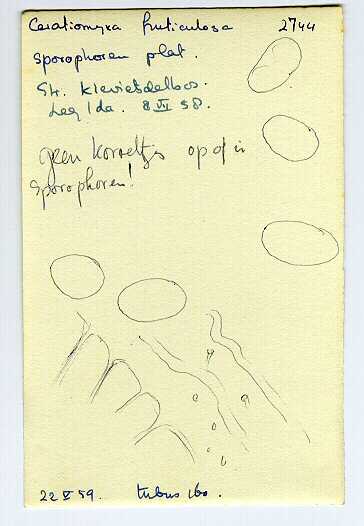 Ceratiomyxa fruticulosa 2744
sporophoren plat.
Str. Kievietsdelbos.
Leg/da. 8 VI 58.
geen korreltjes op of in
sporophoren!
22 V 59. tubus 160.